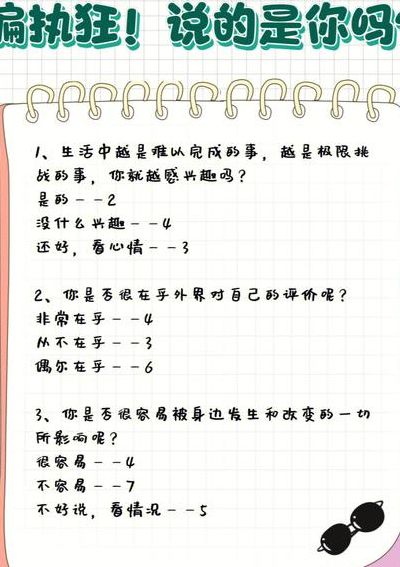 偏执狂！说的是你吗
1、生活中越是难以完成的事，越是极限挑
战的事，你就越感兴趣吗？
是的－－2
没什么兴趣－－4
还好，看心情－－3
2、你是否很在乎外界对自己的评价呢？
非常在乎－－4
从不在乎－－3
偶尔在乎－－6
3、你是否很容易被身边发生和改变的一切
所影响呢？
很容易－－4
不容易－－7
不好说，看情况－－5